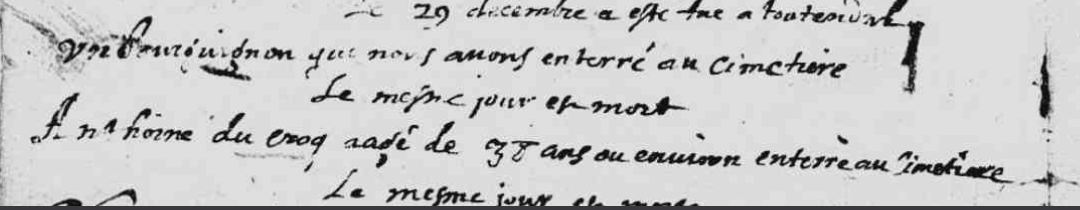 Le 29 decembre a este tué a toutenval
vn bourguignon que nous avons enterré au Cimetiere
Le mesme jour est mort
Anthoine du croq aagé de 38 ans ou environ enterré au Cimetiere
Le mesme jour est mort